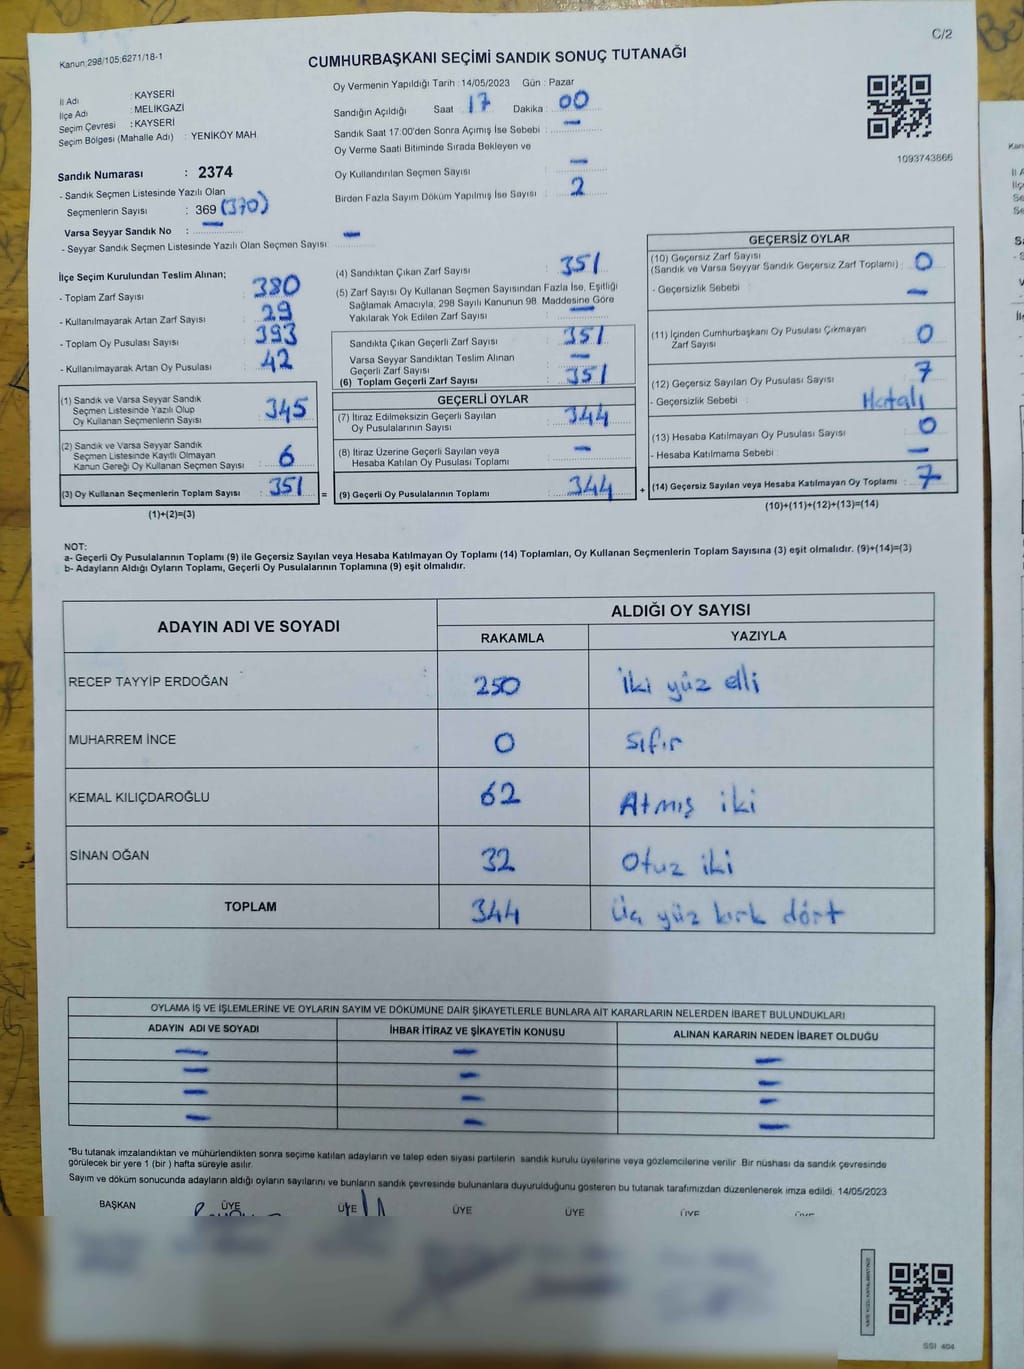 C/2
Kanun:298/105;6271/18-1
CUMHURBAŞKANI SEÇİMİ SANDIK SONUÇ TUTANAĞI
İl Adı : KAYSERİ
İlçe Adı : MELİKGAZİ
Seçim Çevresi : KAYSERİ
Seçim Bölgesi (Mahalle Adı) : YENİKÖY MAH.
Oy Vermenin Yapıldığı Tarih : 14/05/2023 Gün : Pazar
Sandığın Açıldığı Saat 17 Dakika : 00
Sandık Saat 17:00'den Sonra Açımış İse Sebebi : —
Oy Verme Saati Bitiminde Sırada Bekleyen ve
Oy Kullandırılan Seçmen Sayısı —
Birden Fazla Sayım Döküm Yapılmış İse Sayısı : 2
1093743866
Sandık Numarası : 2374
- Sandık Seçmen Listesinde Yazılı Olan
Seçmenlerin Sayısı : 369 (370)
Varsa Seyyar Sandık No : —
- Seyyar Sandık Seçmen Listesinde Yazılı Olan Seçmen Sayısı —
İlçe Seçim Kurulundan Teslim Alınan;
- Toplam Zarf Sayısı : 380
- Kullanılmayarak Artan Zarf Sayısı : 29
- Toplam Oy Pusulası Sayısı : 393
- Kullanılmayarak Artan Oy Pusulası : 42
(1) Sandık ve Varsa Seyyar Sandık
Seçmen Listesinde Yazılı Olup
Oy Kullanan Seçmenlerin Sayısı : 345
(2) Sandık ve Varsa Seyyar Sandık
Seçmen Listesinde Kayıtlı Olmayan
Kanun Gereği Oy Kullanan Seçmen Sayısı : 6
(3) Oy Kullanan Seçmenlerin Toplam Sayısı : 351 =
(1)+(2)=(3)
(4) Sandıktan Çıkan Zarf Sayısı : 351
(5) Zarf Sayısı Oy Kullanan Seçmen Sayısından Fazla İse, Eşitliği
Sağlamak Amacıyla, 298 Sayılı Kanunun 98. Maddesine Göre
Yakılarak Yok Edilen Zarf Sayısı : —
Sandıkta Çıkan Geçerli Zarf Sayısı : 351
Varsa Seyyar Sandıktan Teslim Alınan
Geçerli Zarf Sayısı : —
(6) Toplam Geçerli Zarf Sayısı : 351
GEÇERLİ OYLAR
(7) İtiraz Edilmeksizin Geçerli Sayılan
Oy Pusulalarının Sayısı : 344
(8) İtiraz Üzerine Geçerli Sayılan veya
Hesaba Katılan Oy Pusulası Toplamı : —
(9) Geçerli Oy Pusulalarının Toplamı : 344 +
GEÇERSİZ OYLAR
(10) Geçersiz Zarf Sayısı
(Sandık ve Varsa Seyyar Sandık Geçersiz Zarf Toplamı) : 0
- Geçersizlik Sebebi : —
(11) İçinden Cumhurbaşkanı Oy Pusulası Çıkmayan
Zarf Sayısı : 0
(12) Geçersiz Sayılan Oy Pusulası Sayısı : 7
- Geçersizlik Sebebi : Hatalı
(13) Hesaba Katılmayan Oy Pusulası Sayısı : 0
- Hesaba Katılmama Sebebi : —
(14) Geçersiz Sayılan veya Hesaba Katılmayan Oy Toplamı : 7
(10)+(11)+(12)+(13)=(14)
NOT:
a- Geçerli Oy Pusulalarının Toplamı (9) ile Geçersiz Sayılan veya Hesaba Katılmayan Oy Toplamı (14) Toplamları, Oy Kullanan Seçmenlerin Toplam Sayısına (3) eşit olmalıdır. (9)+(14)=(3)
b- Adayların Aldığı Oyların Toplamı, Geçerli Oy Pusulalarının Toplamına (9) eşit olmalıdır.
ADAYIN ADI VE SOYADI
ALDIĞI OY SAYISI
RAKAMLA YAZIYLA
RECEP TAYYİP ERDOĞAN 250 İki yüz elli
MUHARREM İNCE 0 Sıfır
KEMAL KILIÇDAROĞLU 62 Atmış iki
SİNAN OĞAN 32 Otuz iki
TOPLAM 344 Üç yüz kırk dört
OYLAMA İŞ VE İŞLEMLERİNE VE OYLARIN SAYIM VE DÖKÜMÜNE DAİR ŞİKAYETLERLE BUNLARA AİT KARARLARIN NELERDEN İBARET BULUNDUKLARI
ADAYIN ADI VE SOYADI İHBAR İTİRAZ VE ŞİKAYETİN KONUSU ALINAN KARARIN NEDEN İBARET OLDUĞU
— — —
— — —
— — —
— — —
*Bu tutanak imzalandıktan ve mühürlendikten sonra seçime katılan adayların ve talep eden siyasi partilerin sandık kurulu üyelerine veya gözlemcilerine verilir. Bir nüshası da sandık çevresinde
görülecek bir yere 1 (bir ) hafta süreyle asılır.
Sayım ve döküm sonucunda adayların aldığı oyların sayılarını ve bunların sandık çevresinde bulunanlara duyurulduğunu gösteren bu tutanak tarafımızdan düzenlenerek imza edildi. 14/05/2023
BAŞKAN ÜYE ÜYE ÜYE ÜYE ÜYE
SSI 404